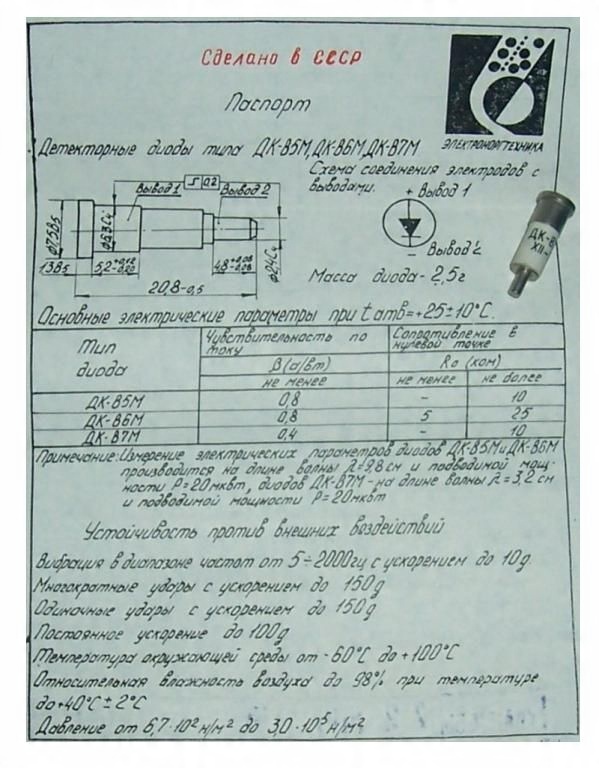 Сделано в СССР
Паспорт
ЭЛЕКТРОНОРГТЕХНИКА
Детекторные диоды типа ДК-В5М, ДК-В6М, ДК-В7М
Схема соединения электродов с
выводами.
+ Вывод 1
- Вывод 2
Масса диода - 2,5г
Вывод 1
0.2
Вывод 2
5,2
4,8
20,8-0,5
ДК-В
XII-
Основные электрические параметры при t amb=+25±10°С.
Тип диода
Чувствительность по току
Сопротивление в нулевой точке
β (а/вт)
Ro (ком)
не менее
не менее
не более
ДК-В5М 0,8 - 10
ДК-В6М 0,8 5 25
ДК-В7М 0,4 - 10
Примечание: Измерение электрических параметров диодов ДК-В5М и ДК-В6М
производится на длине волны λ=9,8 см и подводимой мощ-
ности Р=20мквт, диодов ДК-В7М - на длине волны λ=3,2 см
и подводимой мощности Р=20мквт
Устойчивость против внешних воздействий
Вибрация в диапазоне частот от 5÷2000гц с ускорением до 10g.
Многократные удары с ускорением до 150g
Одиночные удары с ускорением до 150g
Постоянное ускорение до 100g
Температура окружающей среды от -60°С до +100°С
Относительная влажность воздуха до 98% при температуре
до +40°С ± 2°С
Давление от 6,7·10² н/м² до 3,0·10⁵ н/м²